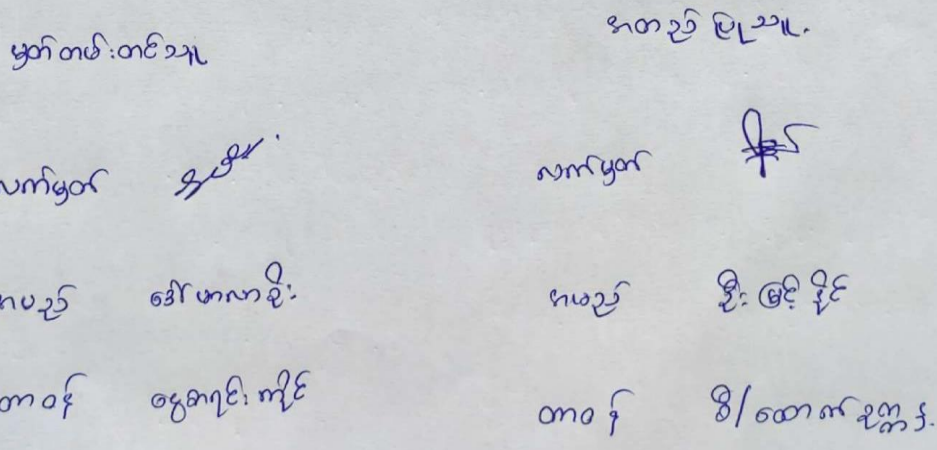 မှတ်တမ်းတင်သူ
လက်မှတ်
အမည် ဒေါ်မာလာစိုး
တာဝန် ငွေစာရင်းကိုင်
အတည်ပြုသူ
လက်မှတ်
အမည် ဦးမြင့်နိုင်
တာဝန် စီ/ထောက်ဥက္ကဌ